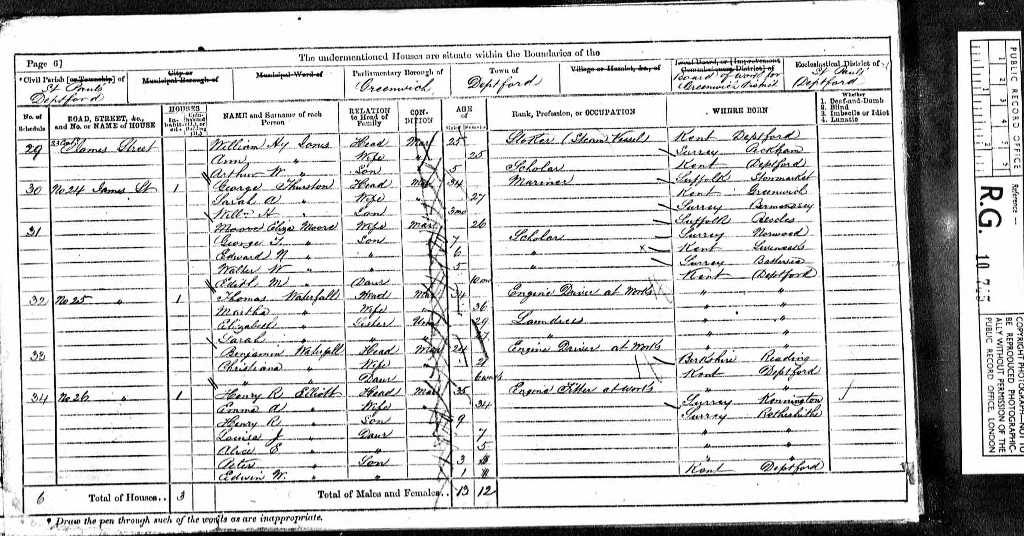 The undermentioned Houses are situate within the Boundaries of the
Page 6]
Civil Parish [or Township] of
St Pauls
Deptford
City or
Municipal Borough of
Municipal Ward of
Parliamentary Borough of
Greenwich
Town of
Deptford
Village or Hamlet, &c., of
Local Board, or [Improvement Commissioners District] of
Board of Works for
Greenwich District
Ecclesiastical District of
St Pauls
Deptford
No. of Schedule
ROAD, STREET, &c., and No. or NAME of HOUSE
HOUSES
NAME and Surname of each Person
RELATION to Head of Family
CONDITION
AGE
Rank, Profession, or OCCUPATION
WHERE BORN
Whether
1. Deaf-and-Dumb
2. Blind
3. Imbecile or Idiot
4. Lunatic
29 James Street William Hy Jones Head Mar 25 Stoker (Steam Vessel) Kent Deptford
Ann " Wife " 25 Surrey Peckham
Arthur W. " Son 5 Scholar Kent Deptford
30 No 24 James St 1 George Thurston Head Mar 34 Mariner Suffolk Stowmarket
Sarah A " Wife " 27 Kent Greenwich
Willm H " Son 3mo Surrey Bermondsey
31 Eliza Moore Wife Mar 26 Suffolk Beccles
George " Son 7 Scholar Surrey Norwood
Edward " " 6 " Kent Sevenoaks
Walter W " " 5 " Surrey Battersea
Edith M " Daur Kent Deptford
32 No 25 " 1 Thomas Waterfall Head Mar 34 Engine Driver at Works " "
Martha " Wife " 36 " "
Elizabeth " Sister Unm 29 Laundress " "
Sarah " " 27 " " "
33 Benjamin Waterfall Head Mar 24 Engine Driver at Works " "
Christiana " Wife " 21 Berkshire Reading
" " Daur Kent Deptford
34 No 26 " 1 Henry R. Elliott Head Mar 35 Engine Fitter at Works " "
Emma A " Wife " 34 Surrey Kennington
Henry R. " Son 9 Surrey Rotherhithe
Louisa J " Daur 7 " "
Alice E " " 5 " "
Peter " Son 3 " "
Edwin W. " " 1 Kent Deptford
6 Total of Houses.. 3 Total of Males and Females.. 13 12
* Draw the pen through such of the words as are inappropriate.
PUBLIC RECORD OFFICE
Reference:-
R.G. 10
COPYRIGHT PHOTOGRAPH—NOT TO
BE REPRODUCED PHOTOGRAPHIC-
ALLY WITHOUT PERMISSION OF THE
PUBLIC RECORD OFFICE, LONDON